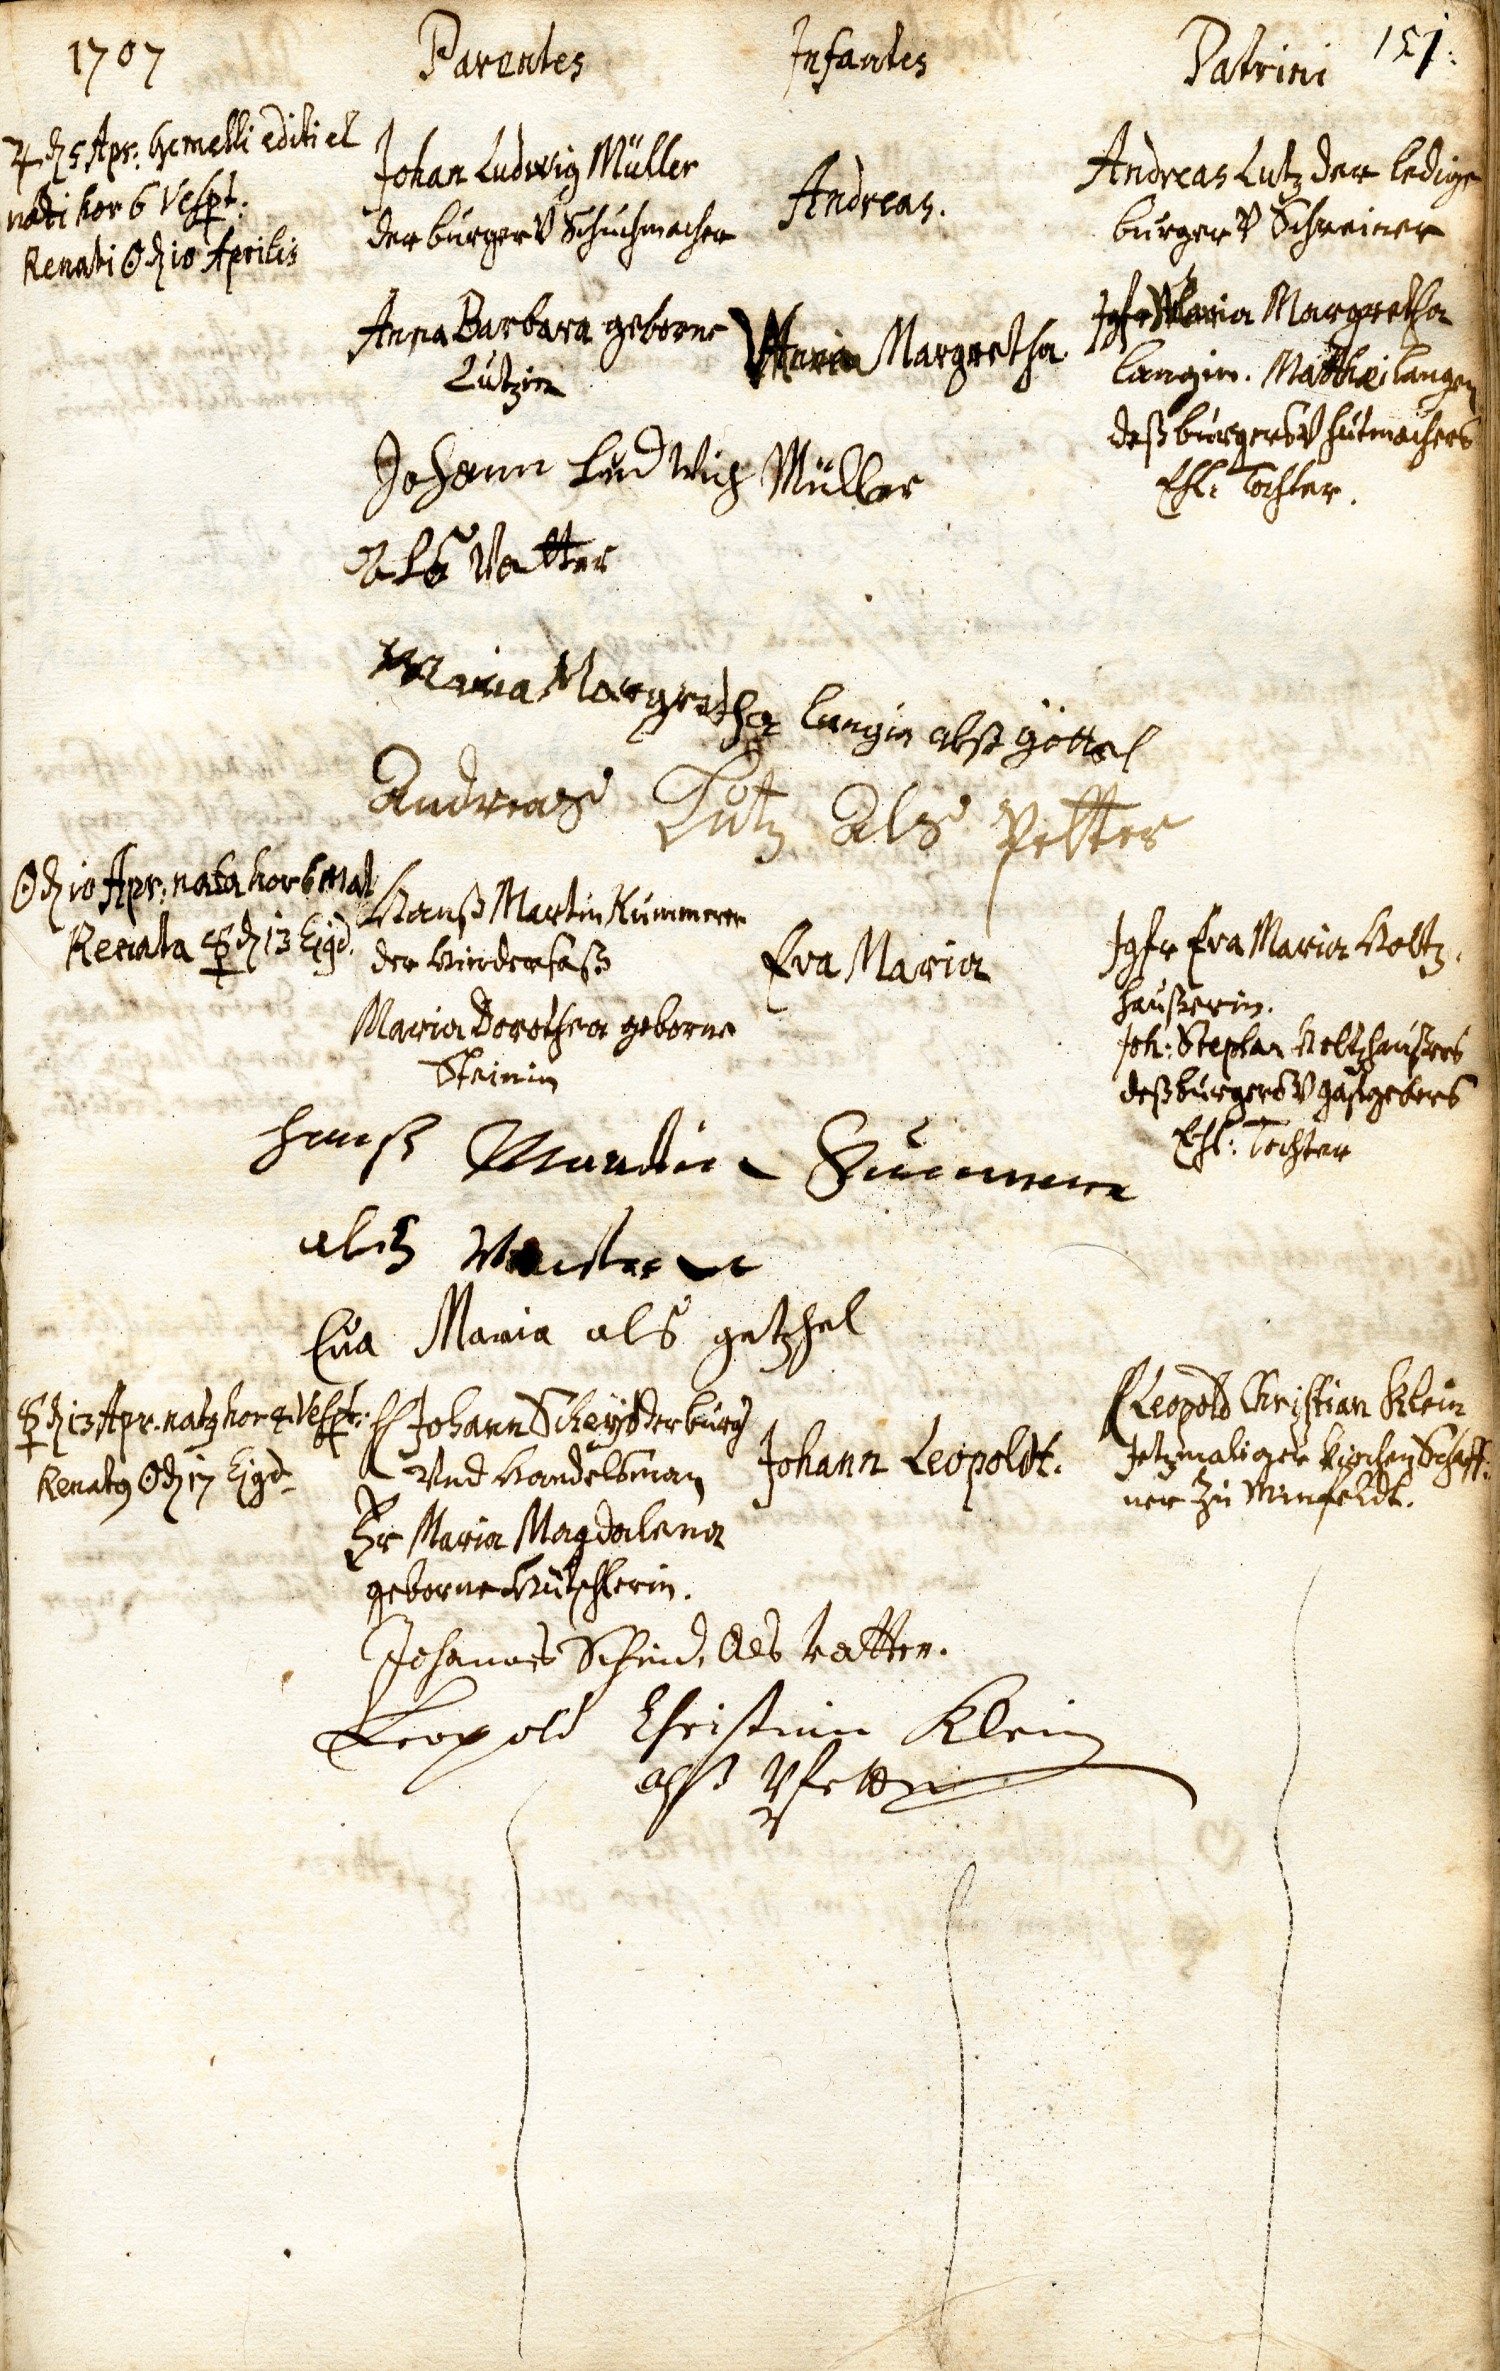 1707 Parentes Infantes Patrini 151.
♃ d 5 Apr: Gemelli editi et
nati hor 6 Vespt:
Renati ☉ d 10 Aprilis
Johan Ludwig Müller
der burger v Schuchmacher
Anna Barbara geborne
Lutzin
Andreas.
Maria Margretha
Andreas Lutz der ledige
burger v Schreiner
Jgfr Maria Margretha
Langin. Matthæi Langen
deß burgers v hutmachers
Ehl: Tochter.
Johann Ludwich Müller
Alß Vatter
Maria Margretha Langin alß göttel
Andreas Lutz Als Petter
☉ d 10 Apr: nata hor 6 mat
Renata ☿ d 13 Ejgd.
Hanß Martin Kummerer
der Hindersaß
Maria Dorothea geborne
Steinin
Eva Maria
Jgfr Eva Maria Holtz-
haußerin.
Joh: Stephan Holtzhaußers
deß burgers v gastgebers
Ehl: Tochter
Hanß Martin Kummerer
alß Vatter
Eva Maria als getzhel
☿ d 13 Apr. natg hor 4 Vespt:
Renatg ☉ d 17 Ejgd.
H Johann der burg
Und Handelsman
Fr Maria Magdalena
geborne
Johann Leopoldt.
H Leopold Christian Klein
Jetzmaliger Kirchen Schaff-
ner zu Minfeldt.
Johannes als Vatter.
Leopold Christian Klein
alß Pfetter